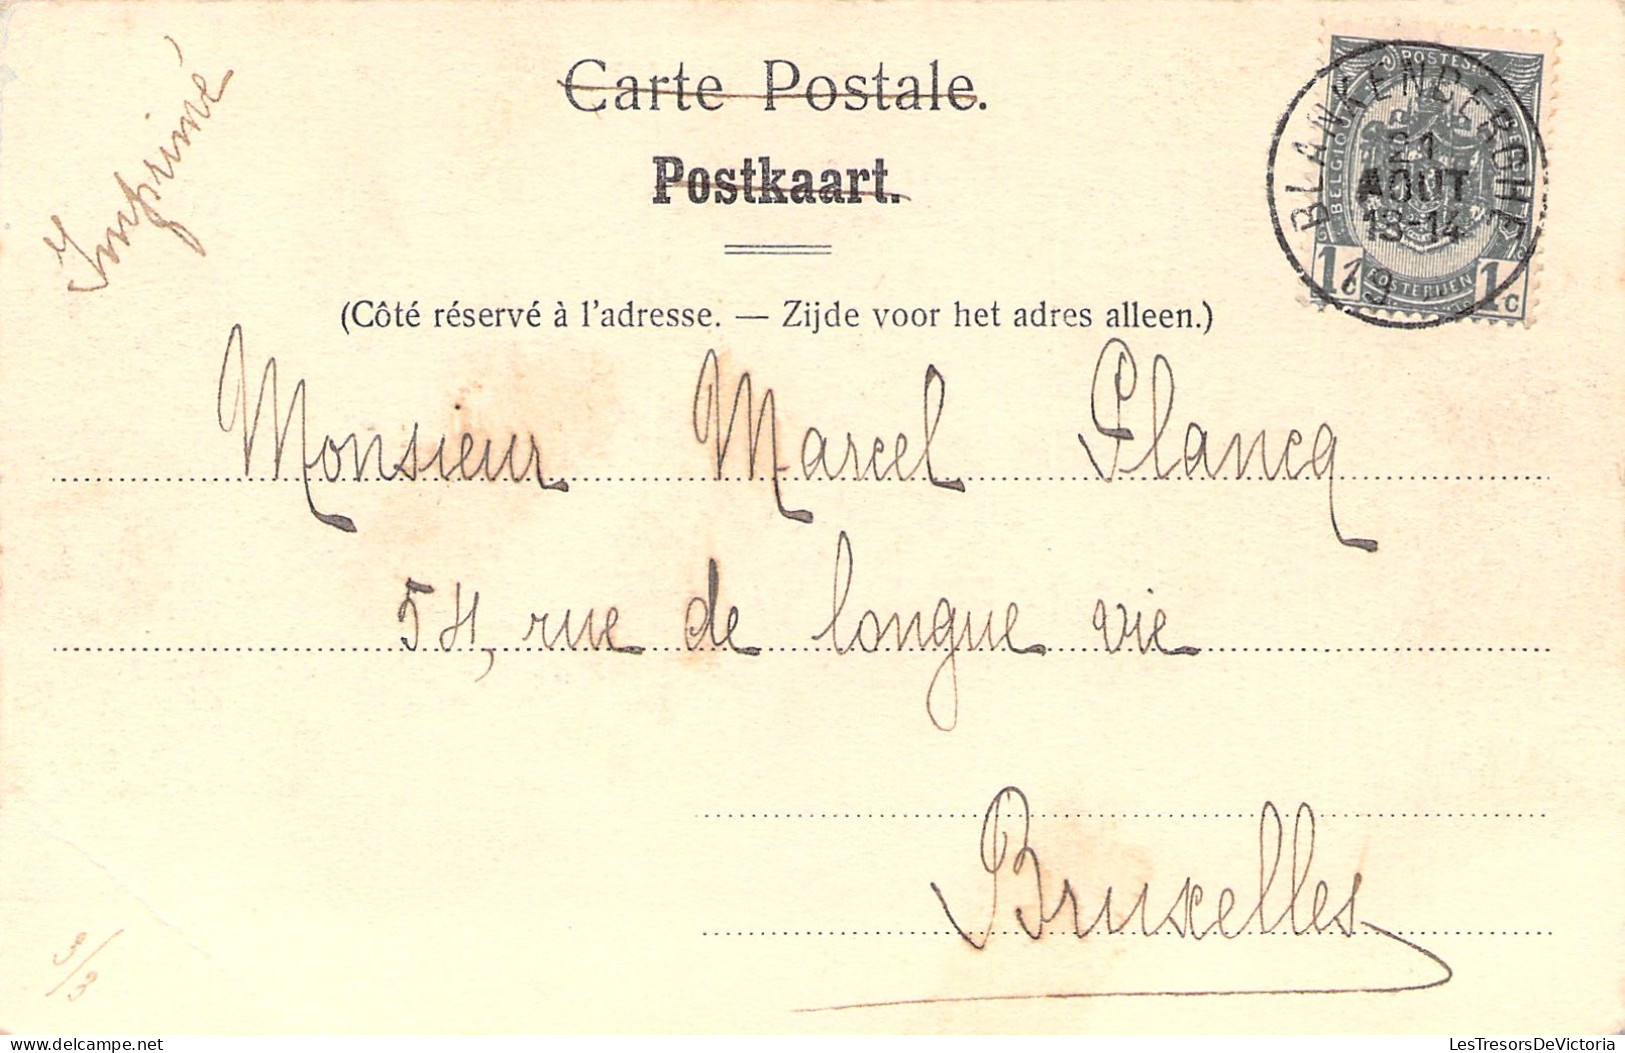 Imprimé
Carte Postale.
Postkaart.
(Côté réservé à l'adresse. — Zijde voor het adres alleen.)
BLANKENBERGHE
21
AOUT
13-14
19
POSTES
BELGIQUE
BELGIE
POSTERIJEN
1c 1c
Monsieur Marcel Plancq
54, rue de longue vie
Bruxelles
3/3
www.delcampe.net
LesTresorsDeVictoria